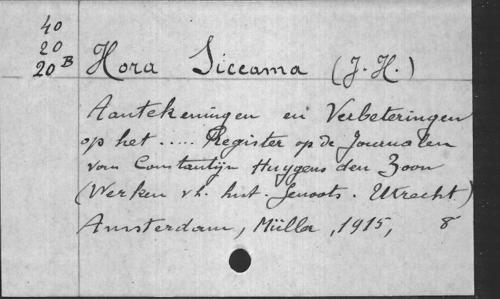 40
20
20 B
Hora Siccama (J. H.)
Aantekeningen en Verbeteringen
op het ..... Register op de Journalen
van Constantijn Huygens den Zoon
(Werken v. h. hist. Genoots. Utrecht)
Amsterdam, Müller, 1915, 8°